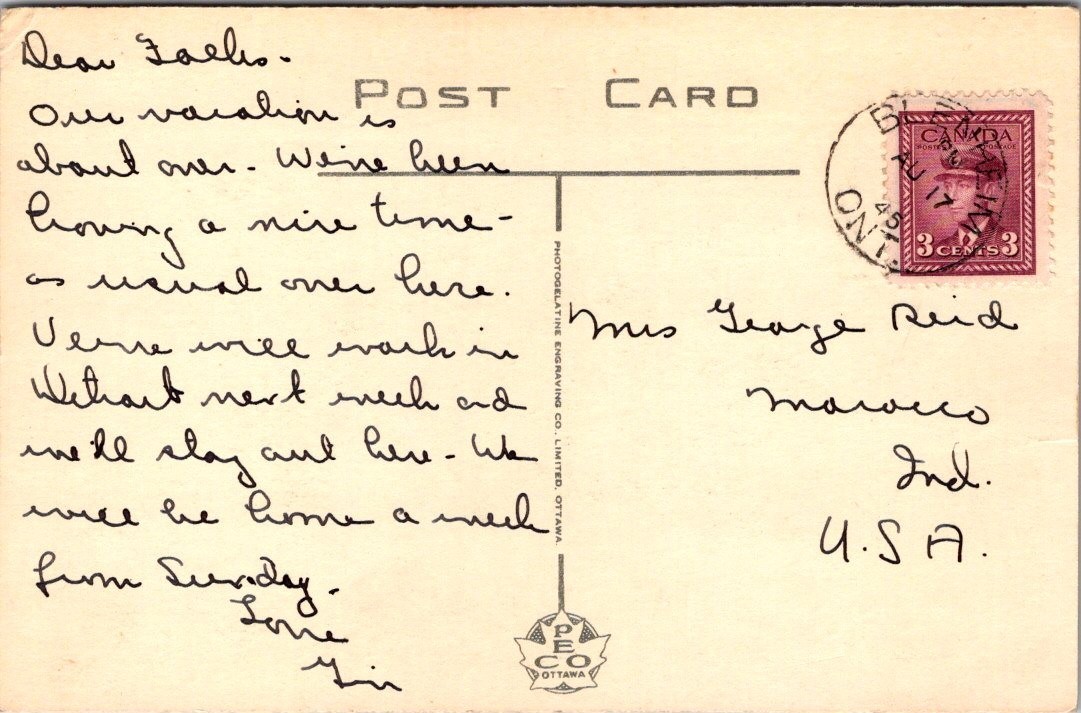 Dear Folks.
Our vacation is
about over. We've been
having a nice time -
as usual over here.
Verne will work in
Detroit next week and
we'll stay out here - We
will be home a week
from Sunday.
Love
Gin
POST CARD
PHOTOGELATINE ENGRAVING CO., LIMITED, OTTAWA.
PECO
OTTAWA
BLENHEIM
PM
AU 17
45
ONT
CANADA
POSTES POSTAGE
3 CENTS 3
Mrs George Reid
Morocco
Ind.
U.S.A.